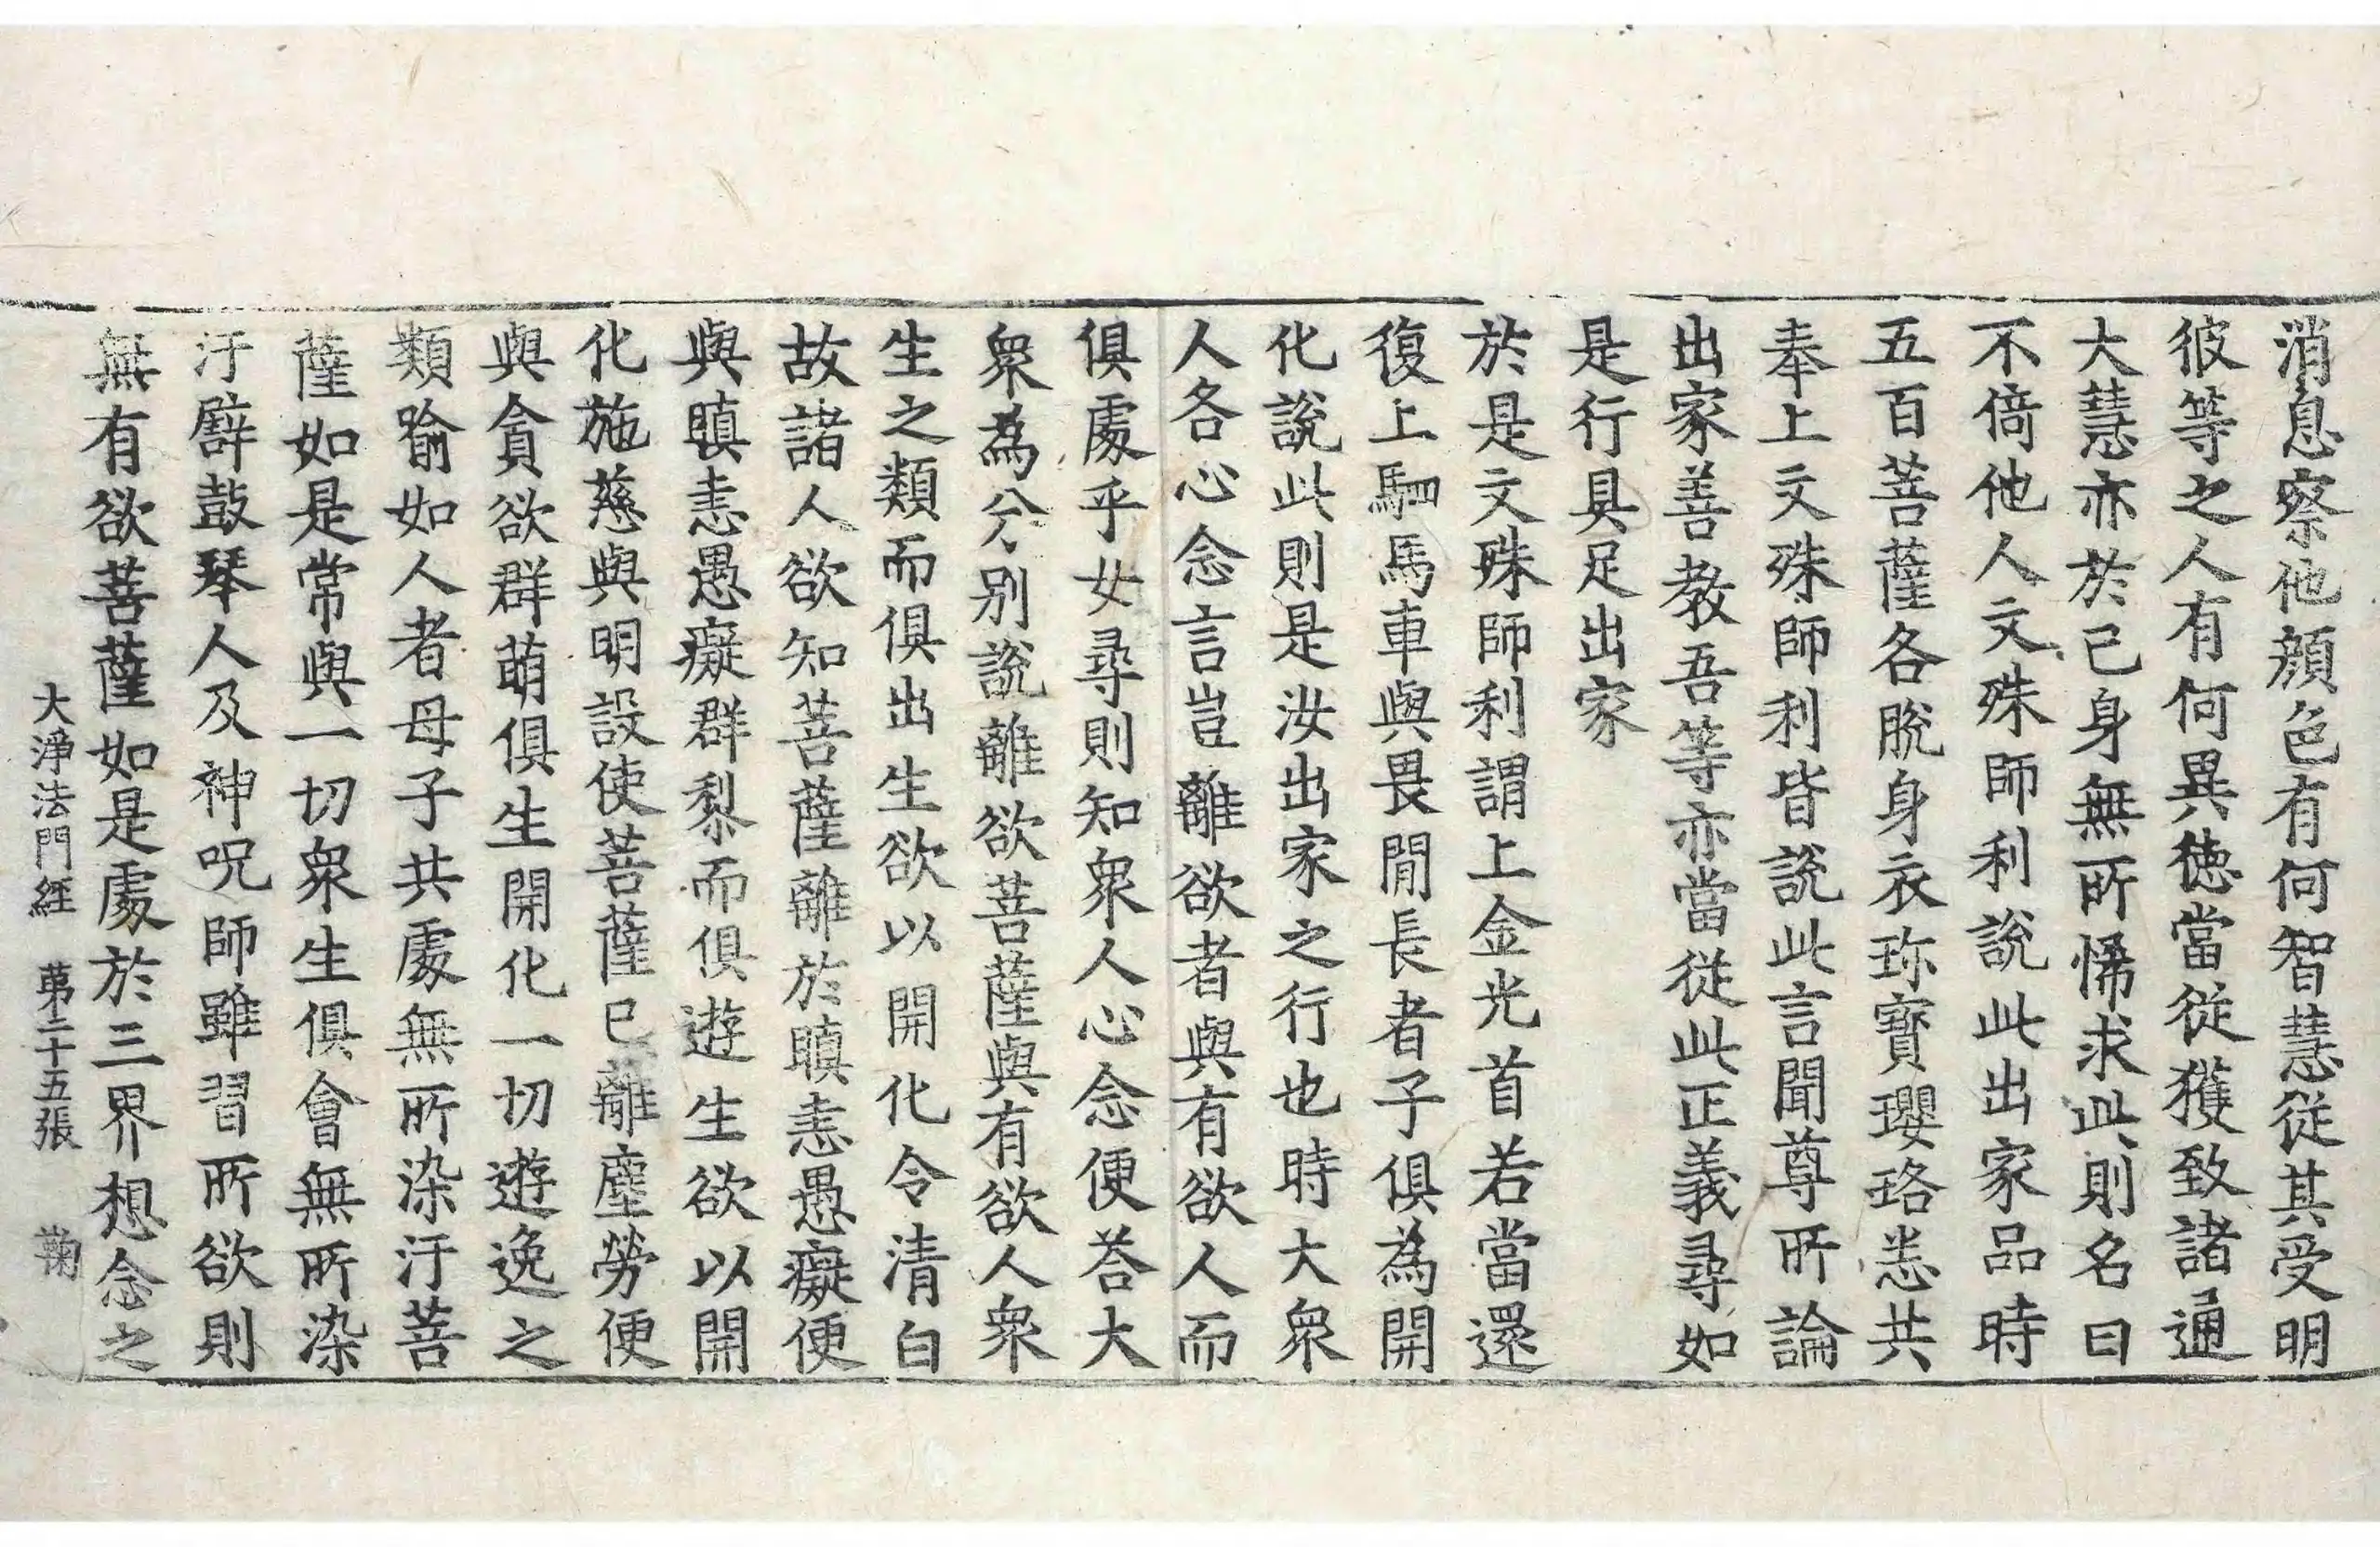 消息察他顔色有何智慧從其受明
彼等之人有何異德當從獲致諸通
大慧亦於己身無所悕求此則名曰
不倚他人文殊師利說此出家品時
五百菩薩各脫身衣珎寶瓔珞悉共
奉上文殊師利皆說此言聞尊所論
出家善教吾等亦當從此正義尋如
是行具足出家
於是文殊師利謂上金光首若當還
復上駟馬車與畏閒長者子俱為開
化說此則是汝出家之行也時大衆
人各心念言豈離欲者與有欲人而
俱處乎女尋則知衆人心念便荅大
衆為分別說離欲菩薩與有欲人衆
生之類而俱出生欲以開化令清白
故諸人欲知菩薩離於瞋恚愚癡便
與瞋恚愚癡群黎而俱遊生欲以開
化施慈與明設使菩薩已離塵勞便
與貪欲群萌俱生開化一切遊逸之
類喻如人者母子共處無所染汙菩
薩如是常與一切衆生俱會無所染
汙譬鼓琴人及神呪師雖習所欲則
無有欲菩薩如是處於三界想念之
大淨法門經 第二十五張 鞠